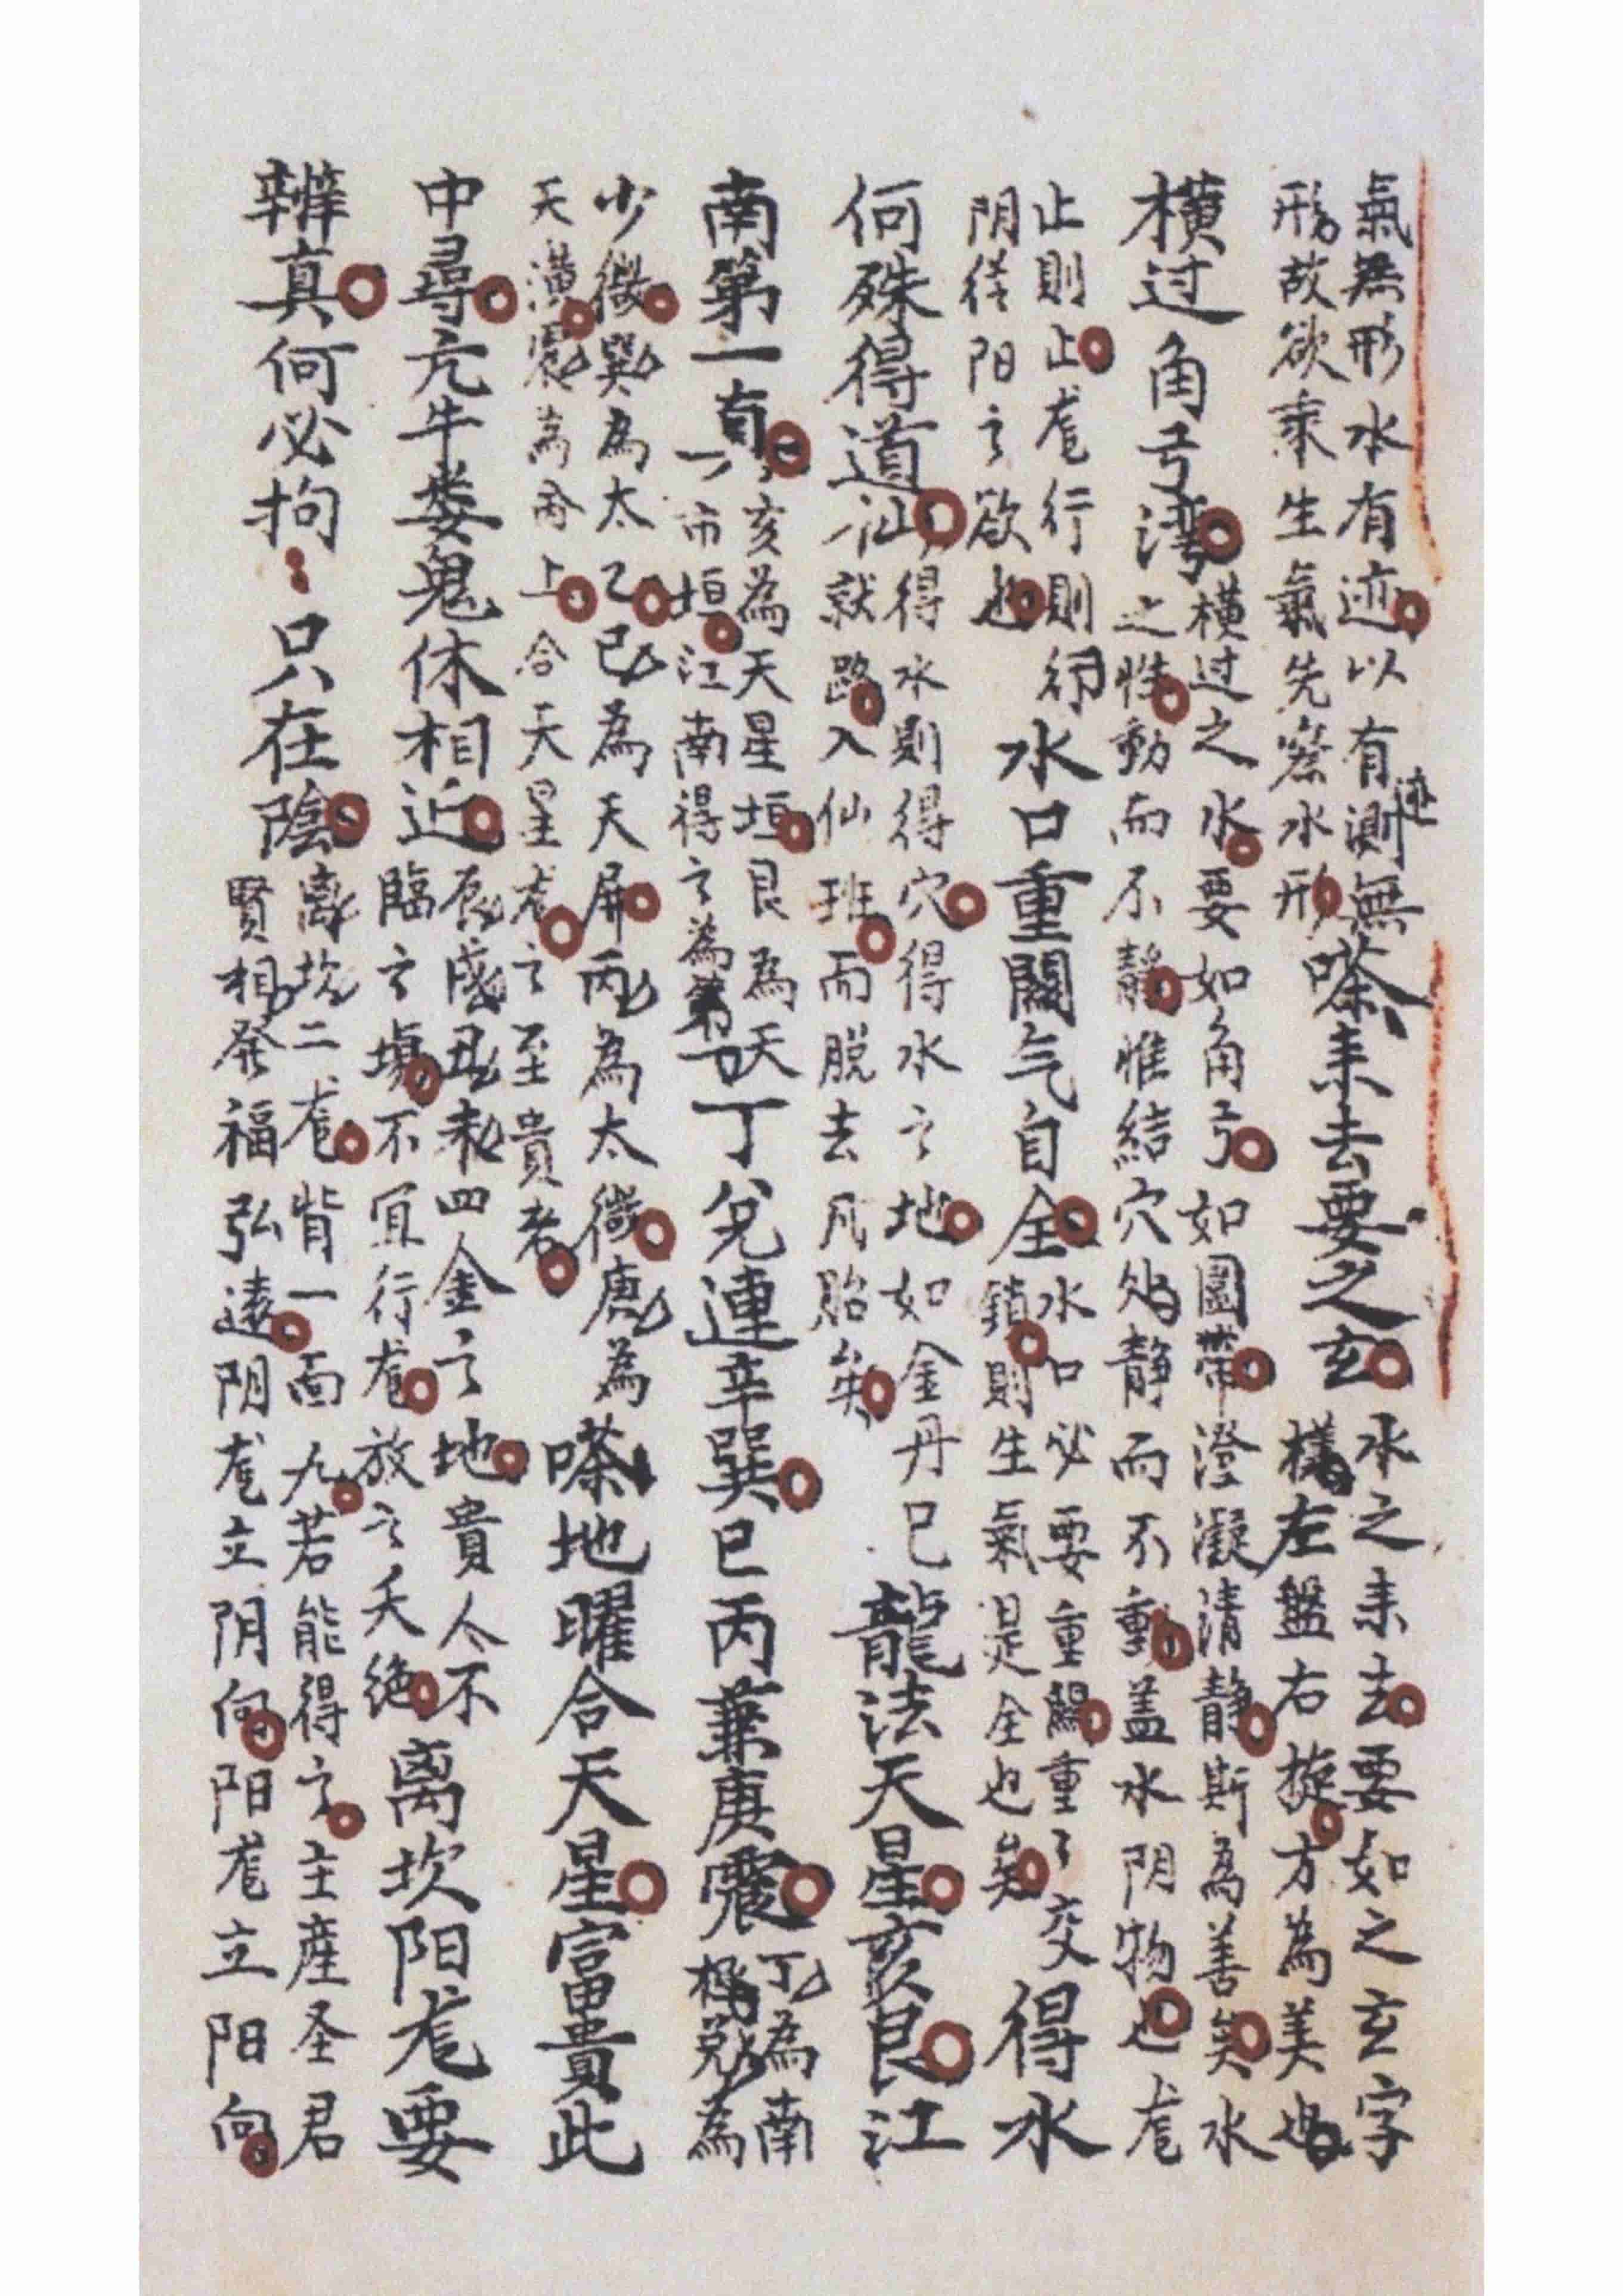 氣無形水有迹以有迹測無
形故欲乘生氣先察水形
嗏来去要之玄
水之来去要如之玄字
樣左盤右旋方為美也
横过角弓湾
横过之水要如角弓如圍帶澄凝清靜斯為善矣水
之性動而不靜惟結穴処静而不動盖水阴物也龙
止則止龙行則行
阴從阳之欲也
水口重關气自全
水口必要重關重〻交
鎖則生氣是全也矣
得水
何殊得道仙
得水則得穴得水之地如金丹已
就路入仙班而脱去凡胎矣
龍法天星亥艮江
南第一有
亥為天星垣艮為天
市垣江南得之為第一
丁兌連辛巽巳丙兼庚震
丁為南
極兌為
少微巽為太乙巳為天屏丙為太微庚為
天潢震為丙上合天星龙之至貴者
嗏地曜合天星富貴此
中尋亢牛娄鬼休相近
辰戌丑未四金之地貴人不
臨之塲不宜行龙放之夭绝
离坎阳龙要
辨真何必拘〻只在陰
离坎二龙背一面九若能得之主産圣君
賢相発福弘遠阴龙立阴向阳龙立阳向